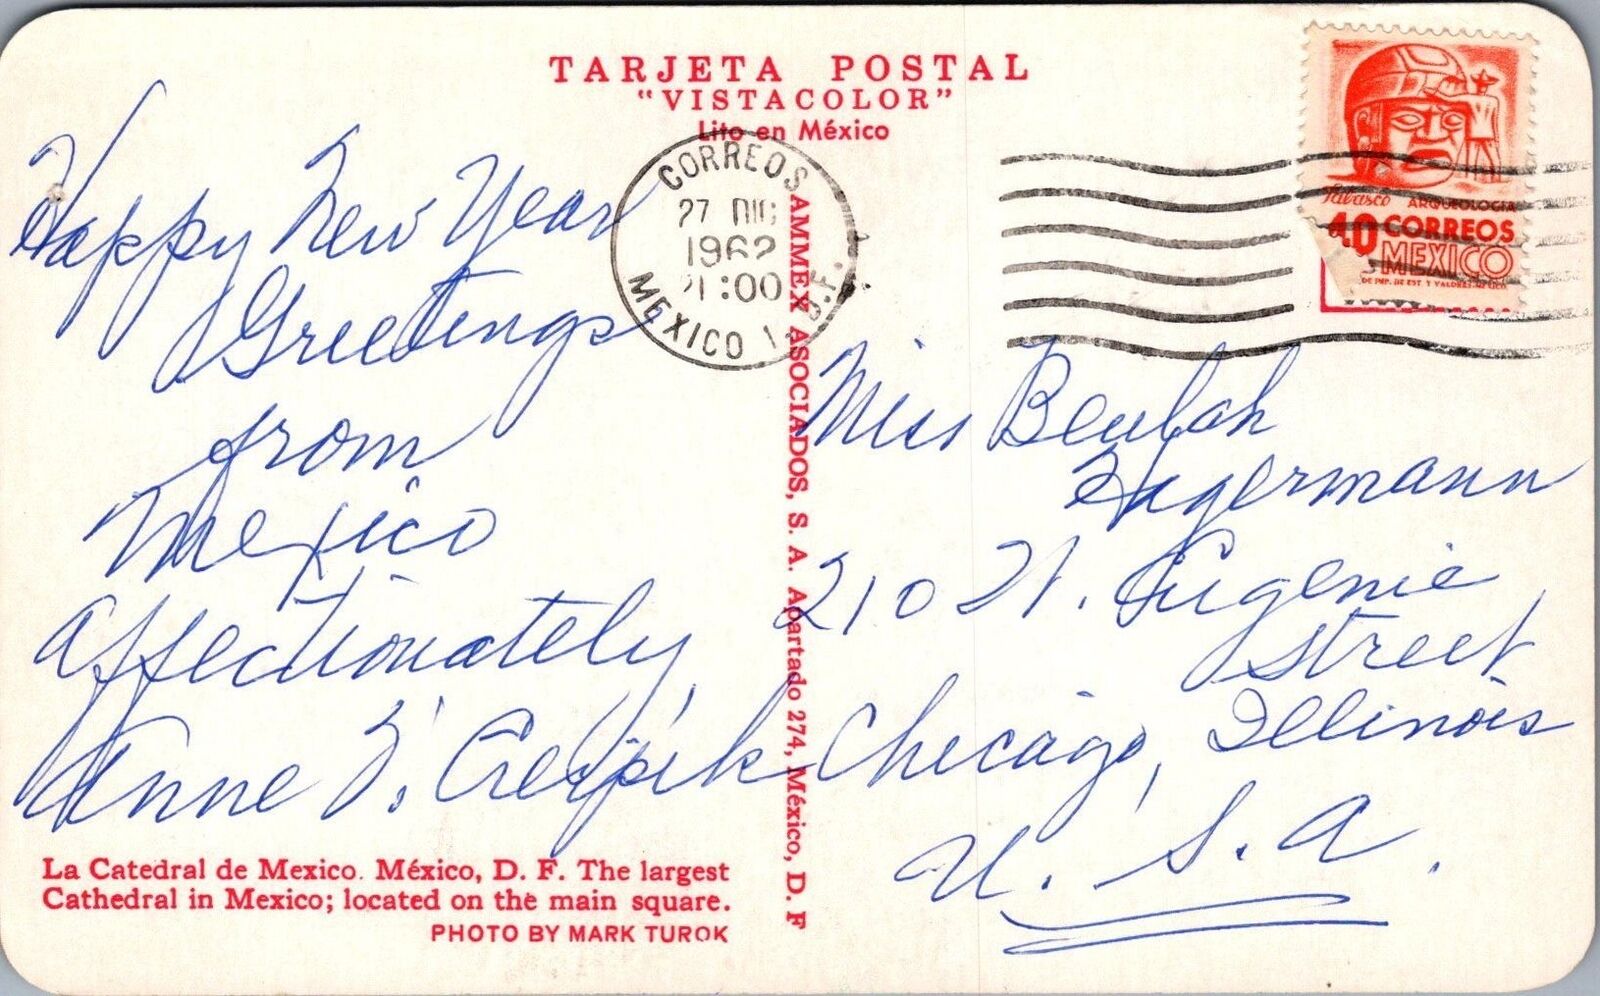 TARJETA POSTAL
"VISTACOLOR"
Lito en México
CORREOS
27 DIC
1962
21:00
MEXICO 1, D.F.
Tabasco ARQUEOLOGIA
40 CORREOS
MEXICO
Happy New Year
Greetings
from
Mexico
Affectionately,
Anne
Miss Beulah
Hagermann
210 W. Eugenie
Street
Chicago, Illinois
U.S.A.
AMMEX ASOCIADOS, S. A. Apartado 274, México, D. F
La Catedral de Mexico. México, D. F. The largest
Cathedral in Mexico; located on the main square.
PHOTO BY MARK TUROK